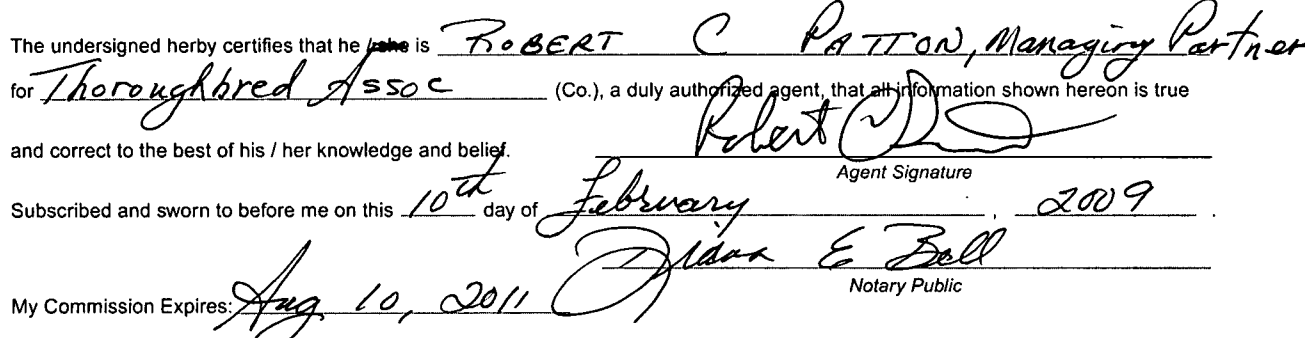 The undersigned herby certifies that he /she is ROBERT C PATTON, Managing Partner
for Thoroughbred Assoc (Co.), a duly authorized agent, that all information shown hereon is true
and correct to the best of his / her knowledge and belief. Robert C
Agent Signature
Subscribed and sworn to before me on this 10th day of February, 2009.
Diana E Bell
Notary Public
My Commission Expires: Aug 10, 2011